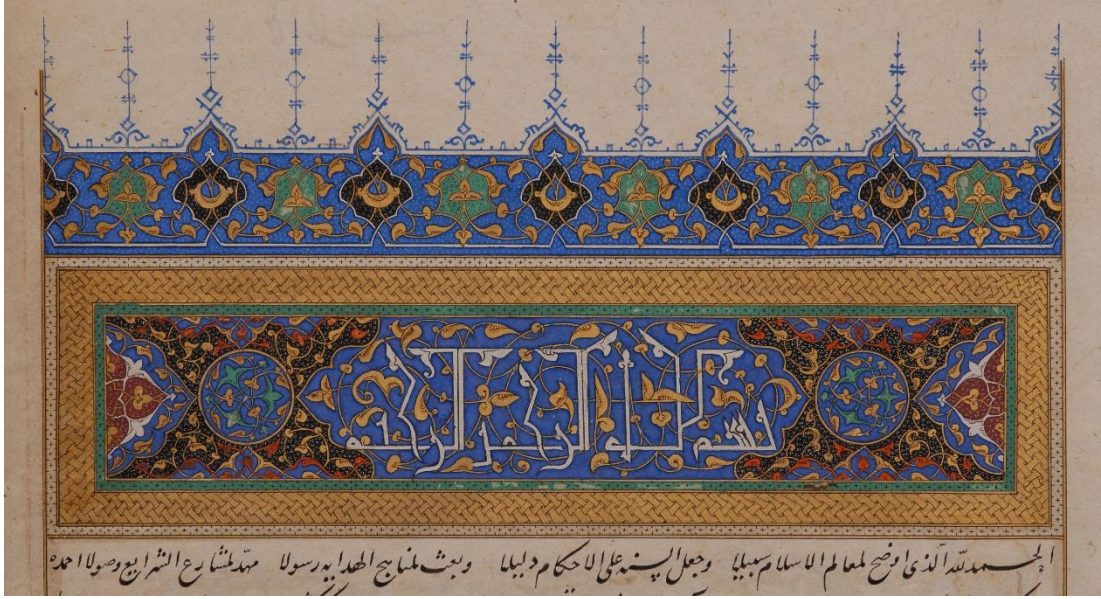 بسم الله الرحمن الرحيم
الحمد لله الذى اوضح لمعالم الاسلام سبيلا وجعل السنه على الاحكام دليلا وبعث لمناهج الهدايه رسولا مهد لمشارع الشرايع وصولا احمده